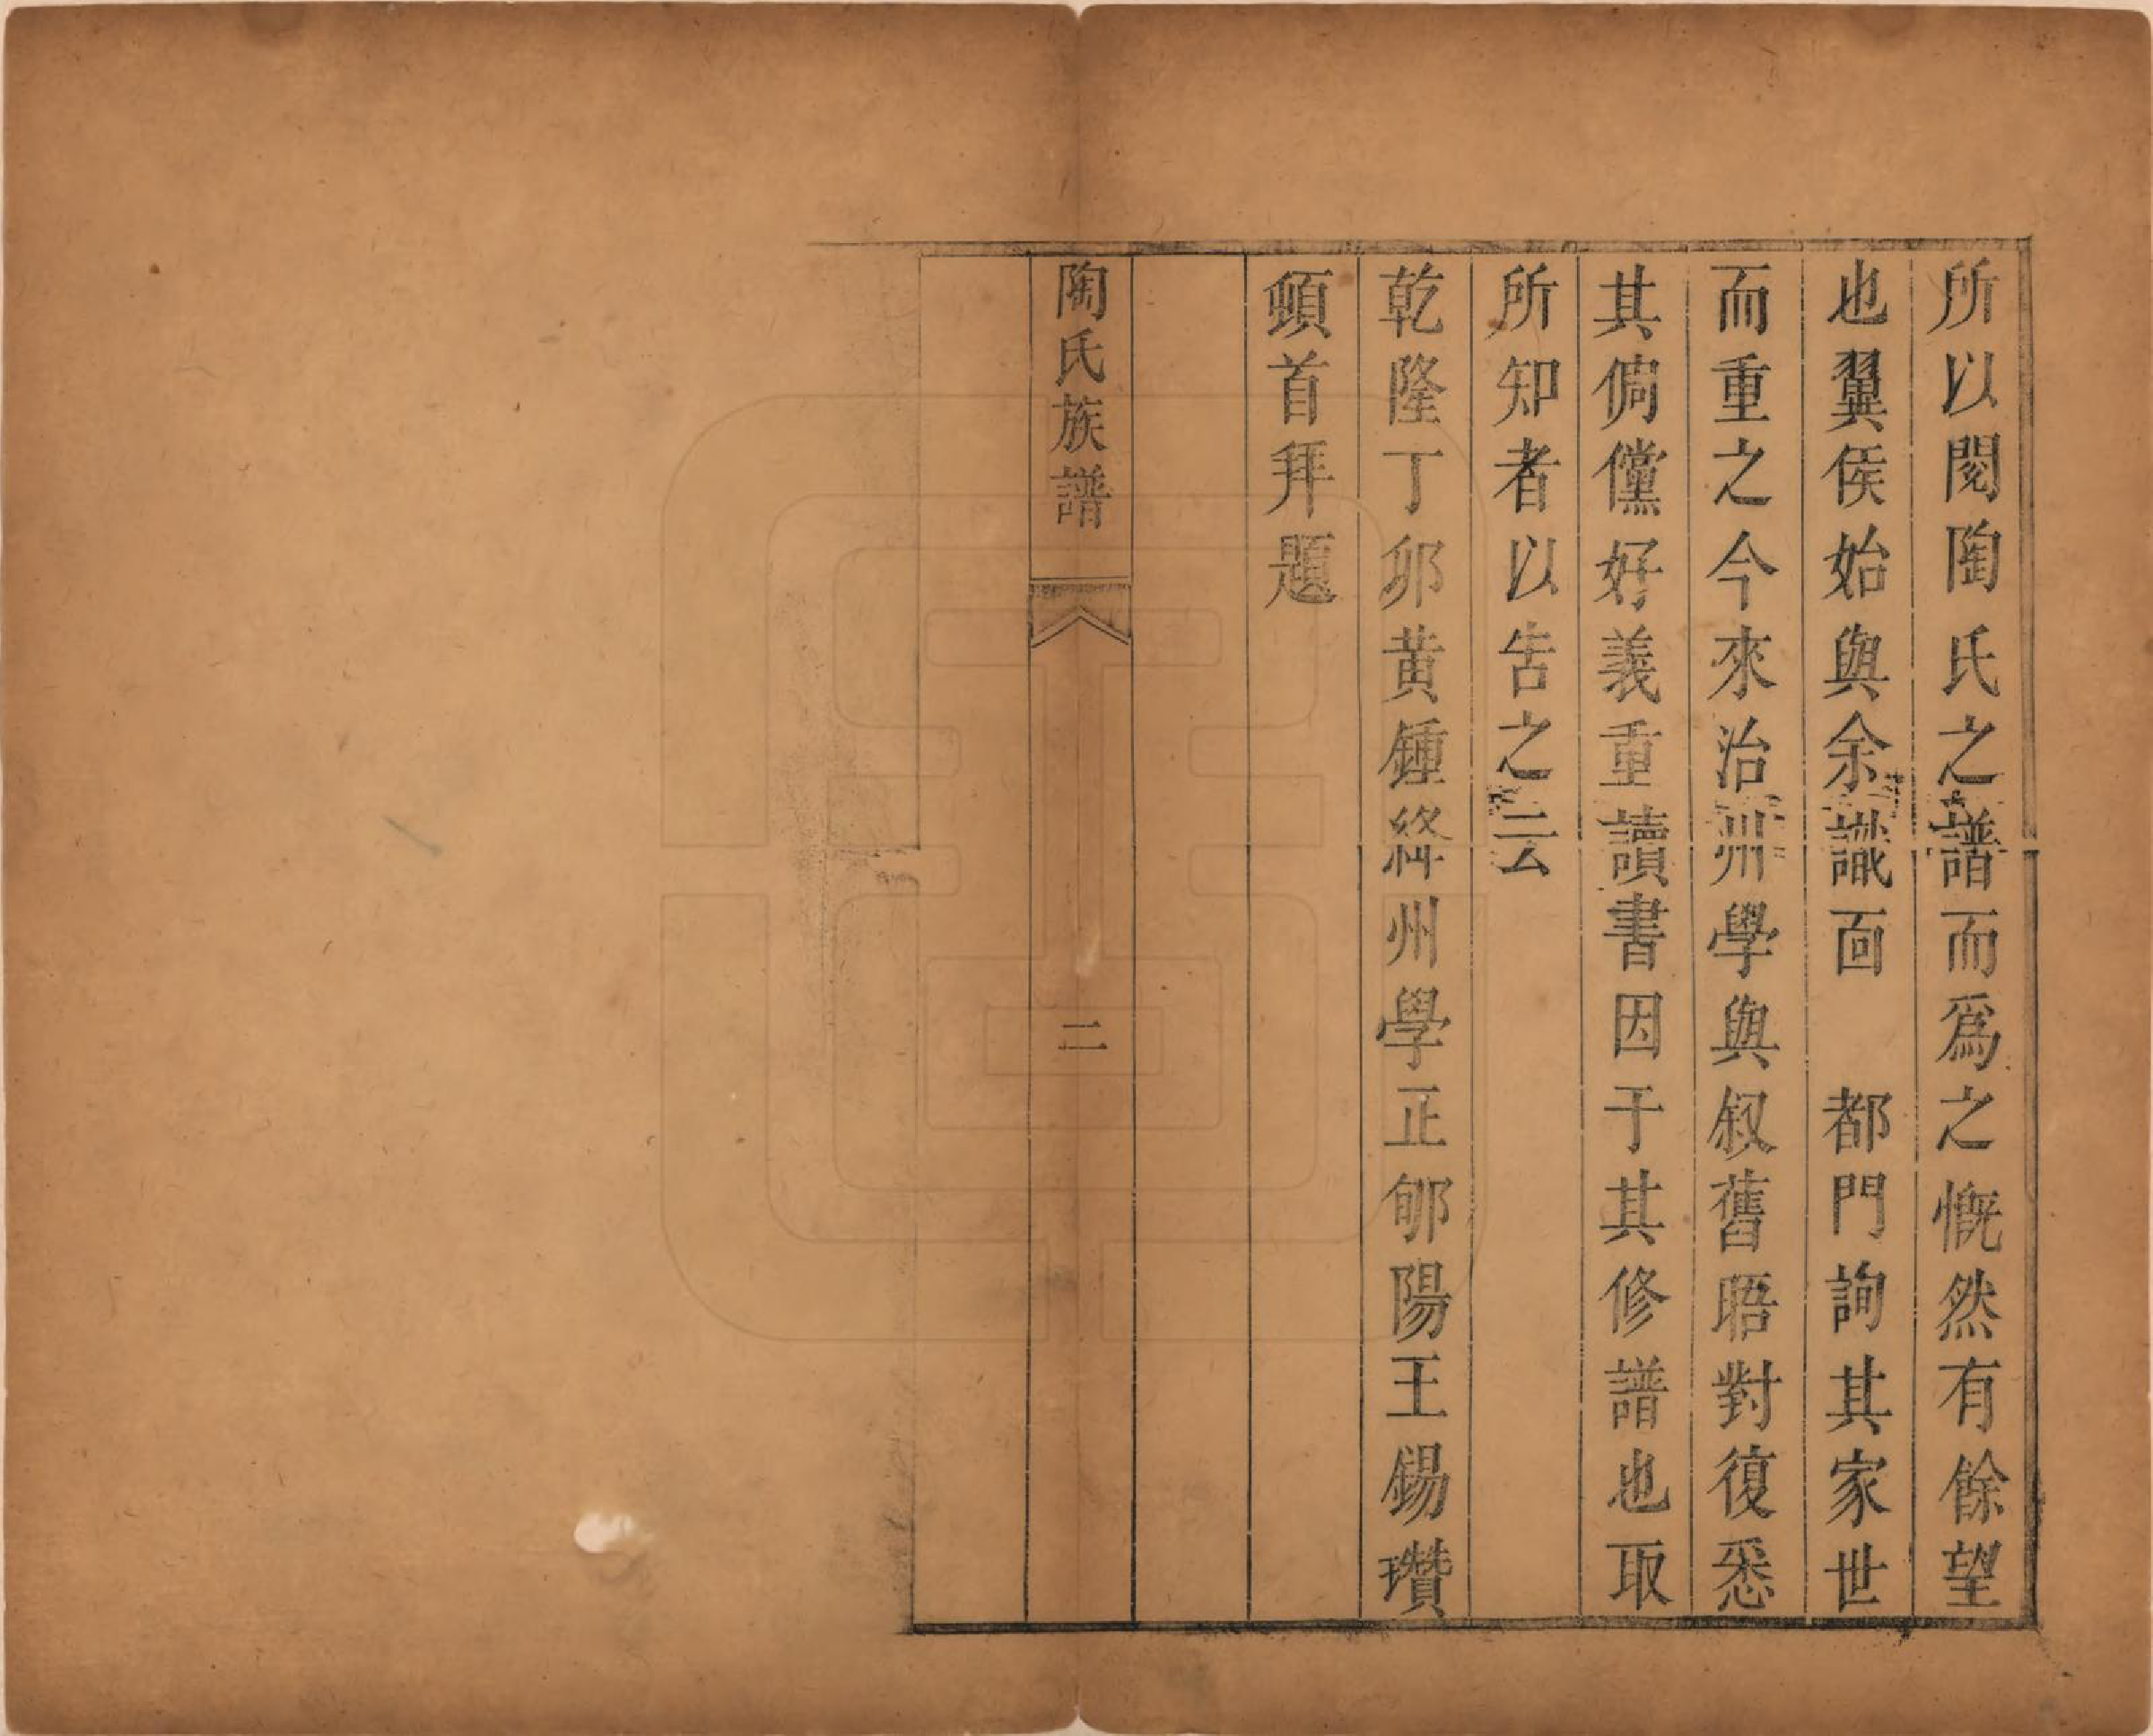 所以閱陶氏之譜而爲之慨然有餘望
也翼侯始與余識面　都門詢其家世
而重之今來治州學與叙舊晤對復悉
其倜儻好義重讀書因于其修譜也取
所知者以告之云
乾隆丁卯黄鍾絳州學正郇陽王錫瓚
頓首拜題
陶氏族譜
二